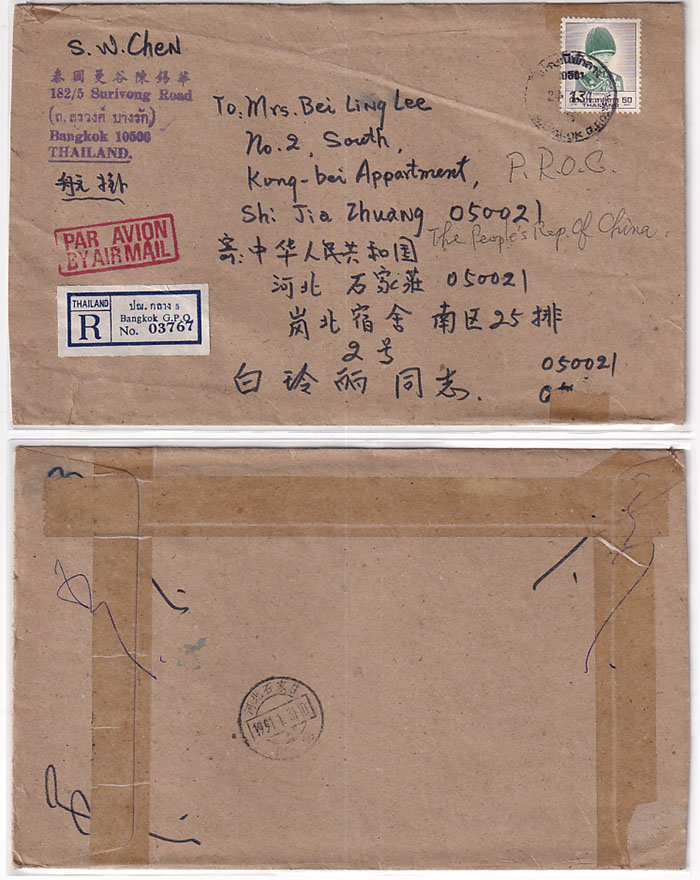 S. W. Chen
泰國曼谷陳錫華
182/5 Suriwong Road
(ถ. สุรวงศ์ บางรัก)
Bangkok 10500
THAILAND.
航掛
PAR AVION
BY AIR MAIL
THAILAND
R
ปณ. กลาง 5
Bangkok G.P.O.
No. 03767
50
THAILAND
To. Mrs. Bei Ling Lee
No. 2, South,
Kong-bei Appartment,
Shi Jia Zhuang 050021
P.R.O.C.
The People's Rep. Of China.
寄:中华人民共和国
河北 石家莊 050021
岗北宿舍 南区25排
2号
白玲丽同志.
050021
河北石家庄
1991.1